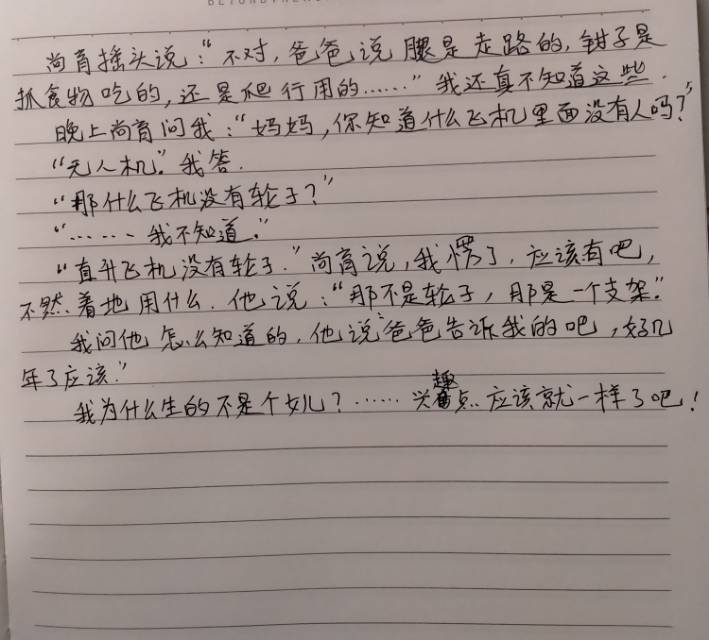 尚育摇头说:“不对,爸爸说腿是走路的,钳子是
抓食物吃的,还是爬行用的……”我还真不知道这些.
晚上尚育问我:“妈妈,你知道什么飞机里面没有人吗?”
“无人机”.我答.
“那什么飞机没有轮子?”
“……我不知道.”
“直升飞机没有轮子.”尚育说,我愣了,应该有吧,
不然着地用什么.他说:“那不是轮子,那是一个支架.”
我问他怎么知道的,他说“爸爸告诉我的吧,好几
年了应该.”
我为什么生的不是个女儿?……兴趣点应该就一样了吧!